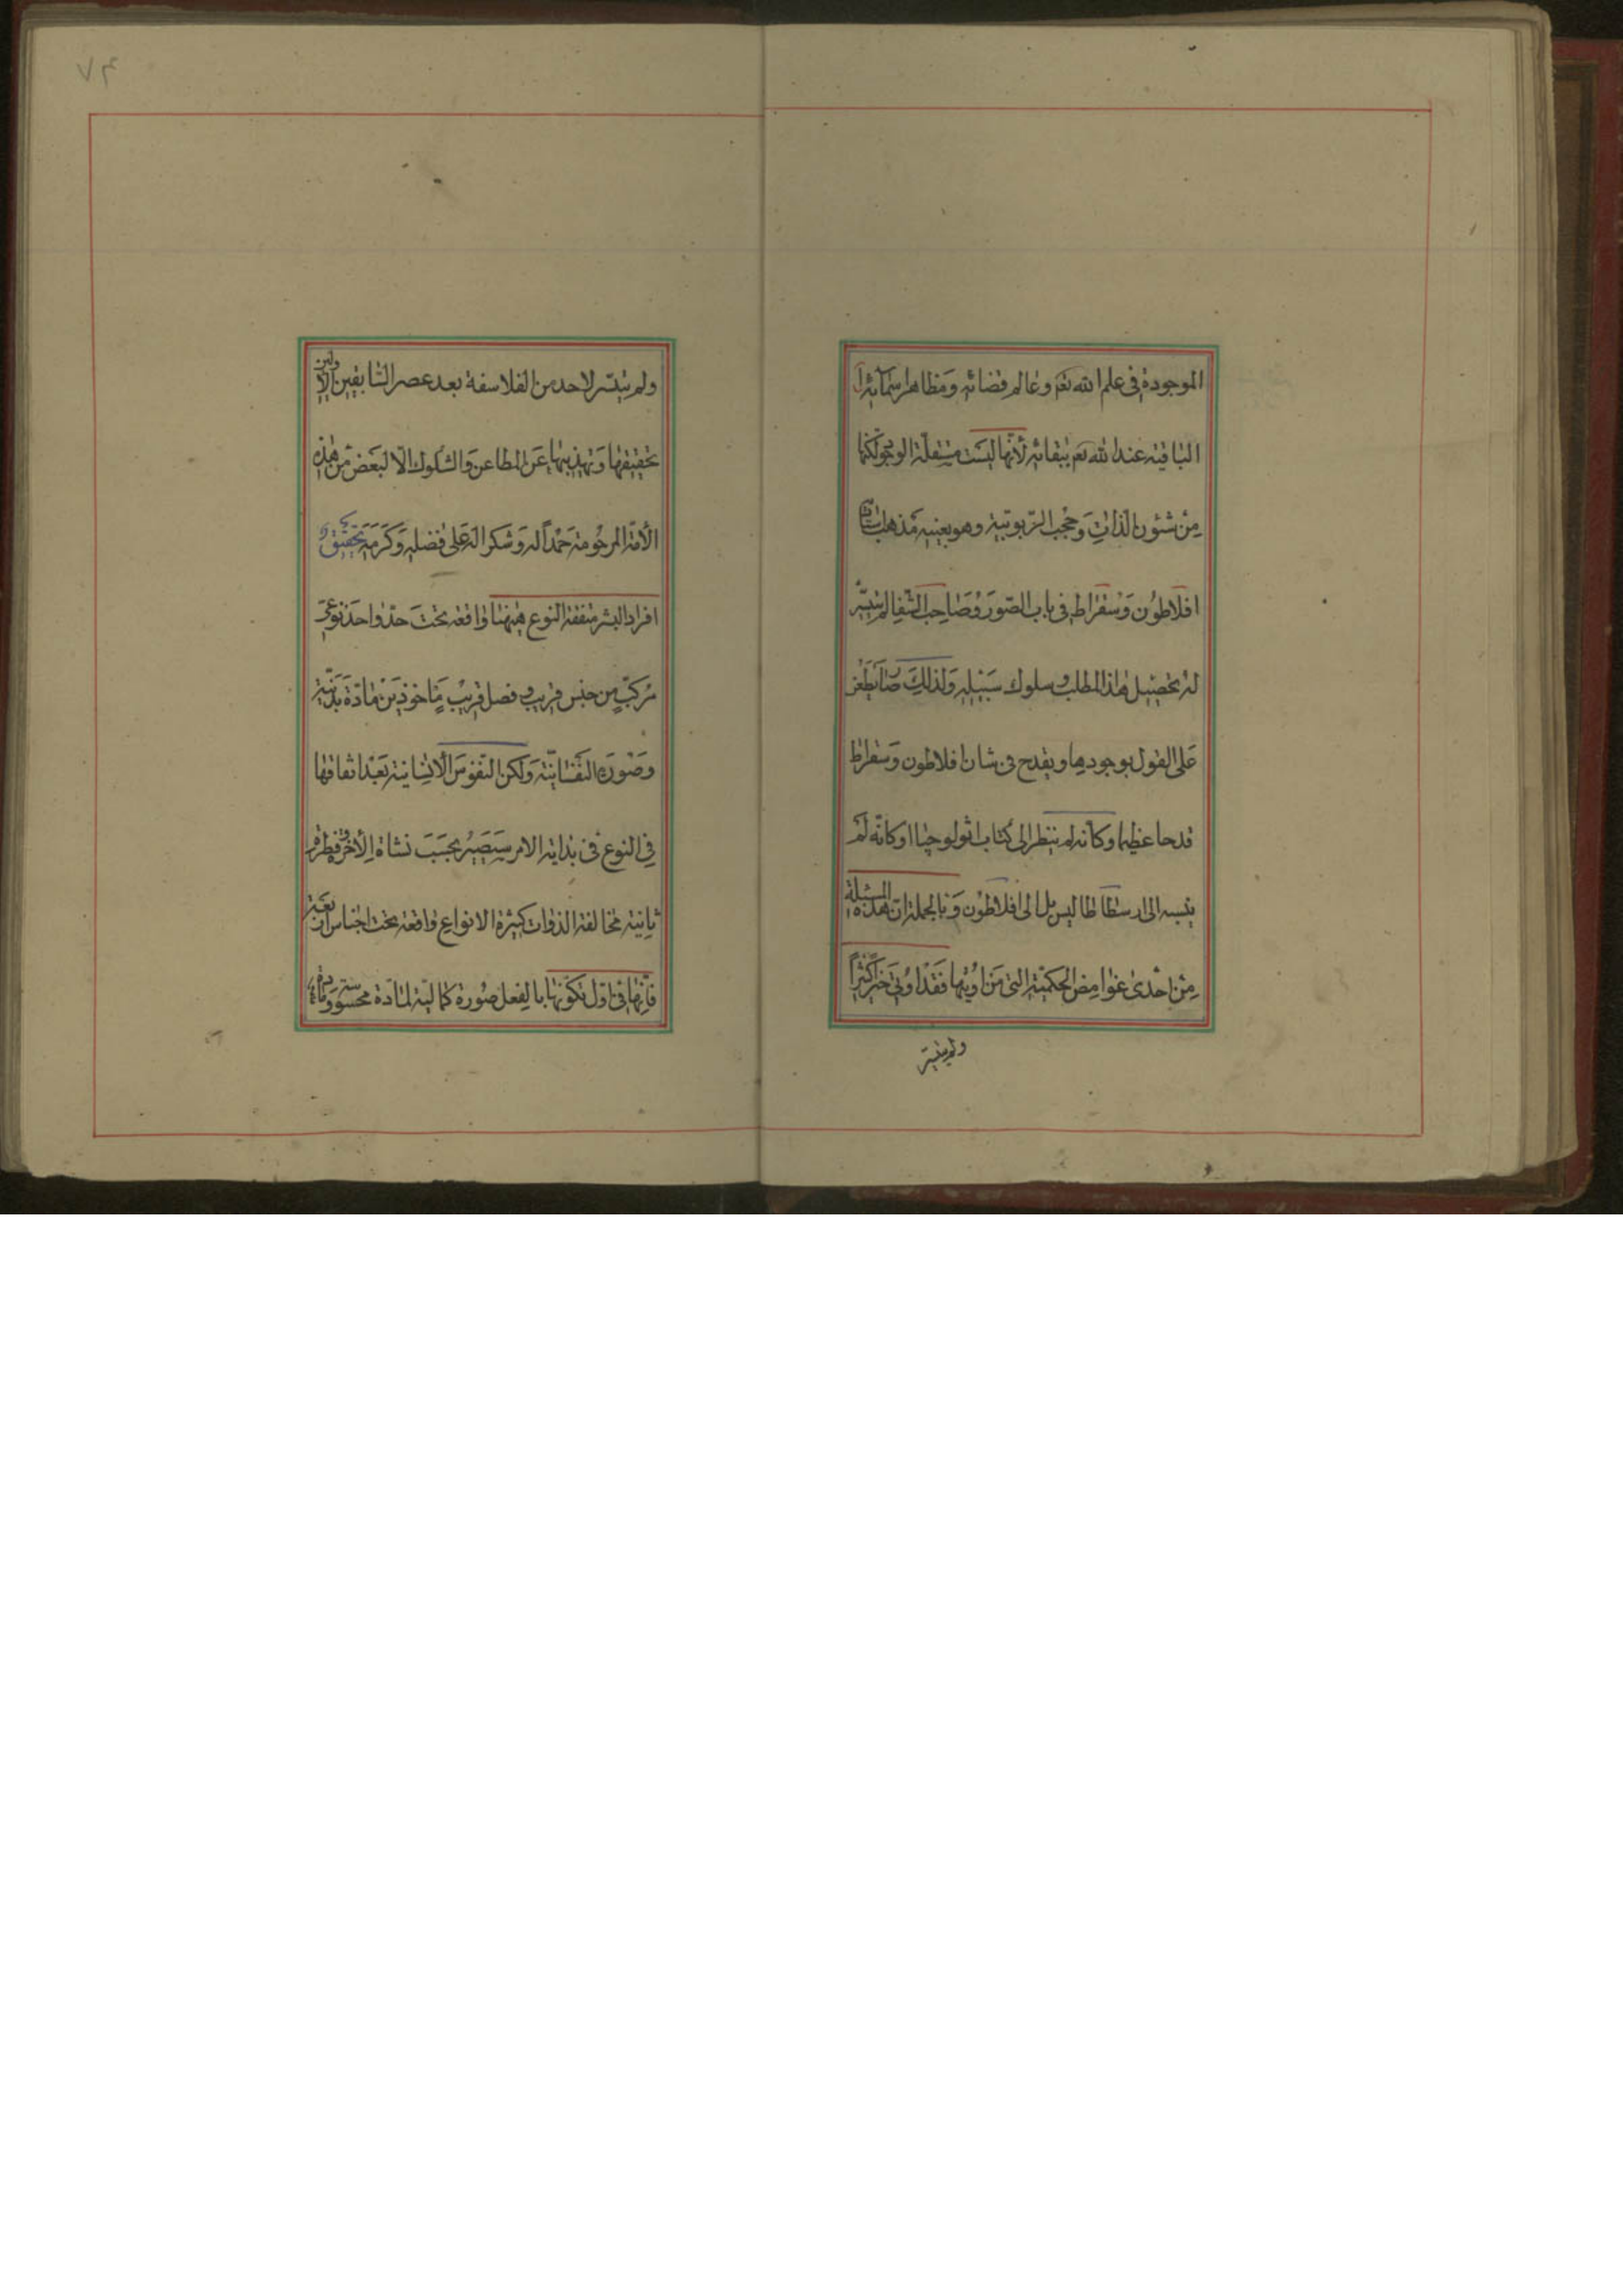 الموجودة فی علم الله تعم و عالم قضائه و مظاهر اسمائه
الباقیة عند الله تعم ببقائه لأنها لیست مستقلة الوجود لکنها
من شئون الذات و حجب الربوبیة و هو بعینه مذهب
افلاطون و سقراط فی باب الصور و صاحب الشفا لم یتیسر
له تحصیل هذا المطلب و سلوک سبیله و لذلک صار یطعن
علی القول بوجودها و یقدح فی شان افلاطون و سقراط
قدحا عظیما و کأنه لم ینظر الی کتاب اثولوجیا او کأنه لم
ینسبه الی ارسطاطالیس بل الی افلاطون و بالجملة ان هذه المسئلة
من احدی غوامض الحکمیة التی من اوتیها فقد اوتی خیرا کثیرا
ولم یتیسر
ولم یتیسر لاحد من الفلاسفة بعد عصر السابقین الاولین
تحقیقها و تهذیبها عن المطاعن و الشکوک الا لبعض من هذه
الأمة المرحومة حمدا له و شکرا له علی فضله و کرمه تحقیق
افراد البشر متفقة النوع هیهنا واقعة تحت حد واحد نوعی
مرکب من جنس قریب و فصل قریب ماخوذین من مادة بدنیة
و صورة النفسانیة و لکن النفوس الانسانیة بعد اتفاقها
فی النوع فی بدایة الامر ستصیر بحسب نشاة الأخری و فطرة
ثانیة مخالفة الذوات کثیرة الانواع واقعة تحت اجناس اربعة
فأنها فی اول تکونها بالفعل صورة کمالیة لمادة محسوسة و مادة
۶۷